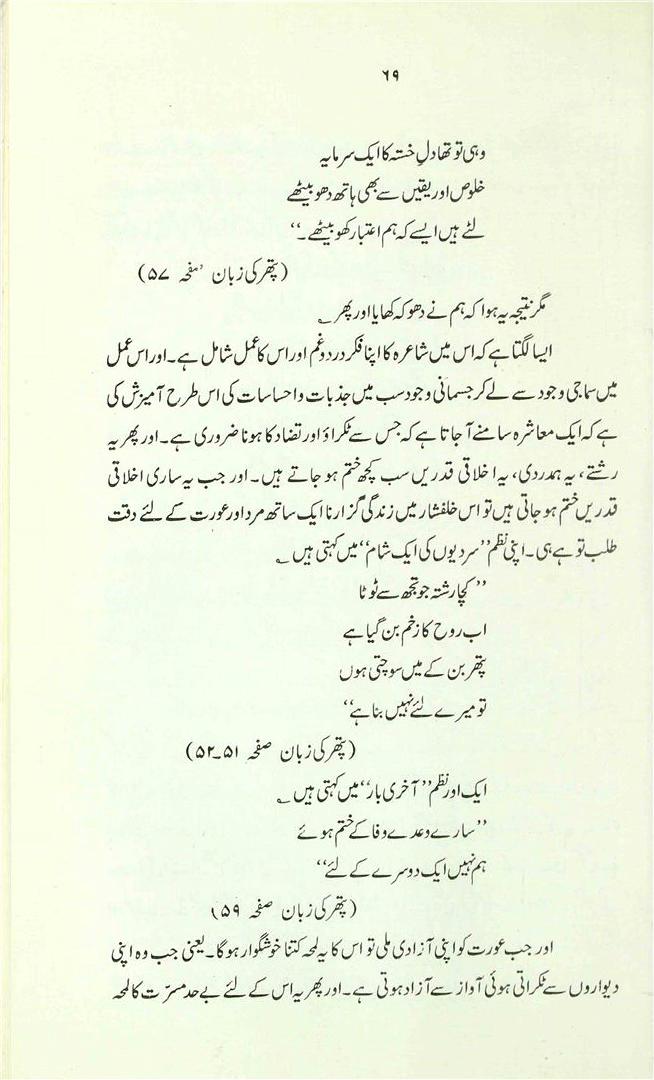 ۶۹
وہی تو تھا دلِ خستہ کا ایک سرمایہ
خلوص اور یقیں سے بھی ہاتھ دھو بیٹھے
لٹے ہیں ایسے کہ ہم اعتبار کھو بیٹھے۔‘‘
(پتھر کی زبان ’صفحہ ۵۷)
مگر نتیجہ یہ ہوا کہ ہم نے دھوکہ کھایا اور پھر ؎
ایسا لگتا ہے کہ اس میں شاعرہ کا اپنا فکر درد و غم اور اس کا عمل شامل ہے۔ اور اس عمل
میں سماجی وجود سے لے کر جسمانی وجود سب میں جذبات و احساسات کی اس طرح آمیزش کی
ہے کہ ایک معاشرہ سامنے آ جاتا ہے کہ جس سے ٹکراؤ اور تضاد کا ہونا ضروری ہے۔ اور پھر یہ
رشتے، یہ ہمدردی، یہ اخلاقی قدریں سب کچھ ختم ہو جاتے ہیں۔ اور جب یہ ساری اخلاقی
قدریں ختم ہو جاتی ہیں تو اس خلفشار میں زندگی گزارنا ایک ساتھ مرد اور عورت کے لئے دقت
طلب تو ہے ہی۔ اپنی نظم ’’سردیوں کی ایک شام‘‘ میں کہتی ہیں ؎
’’کچا رشتہ جو تجھ سے ٹوٹا
اب روح کا زخم بن گیا ہے
پتھر بن کے میں سوچتی ہوں
تو میرے لئے نہیں بنا ہے‘‘
(پتھر کی زبان صفحہ ۵۱۔۵۲)
ایک اور نظم ’’آخری بار‘‘ میں کہتی ہیں ؎
’’سارے وعدے وفا کے ختم ہوئے
ہم نہیں ایک دوسرے کے لئے‘‘
(پتھر کی زبان صفحہ ۵۹)
اور جب عورت کو اپنی آزادی ملی تو اس کا یہ لمحہ کتنا خوشگوار ہوگا۔ یعنی جب وہ اپنی
دیواروں سے ٹکراتی ہوئی آواز سے آزاد ہوتی ہے۔ اور پھر یہ اس کے لئے بے حد مسرّت کا لمحہ